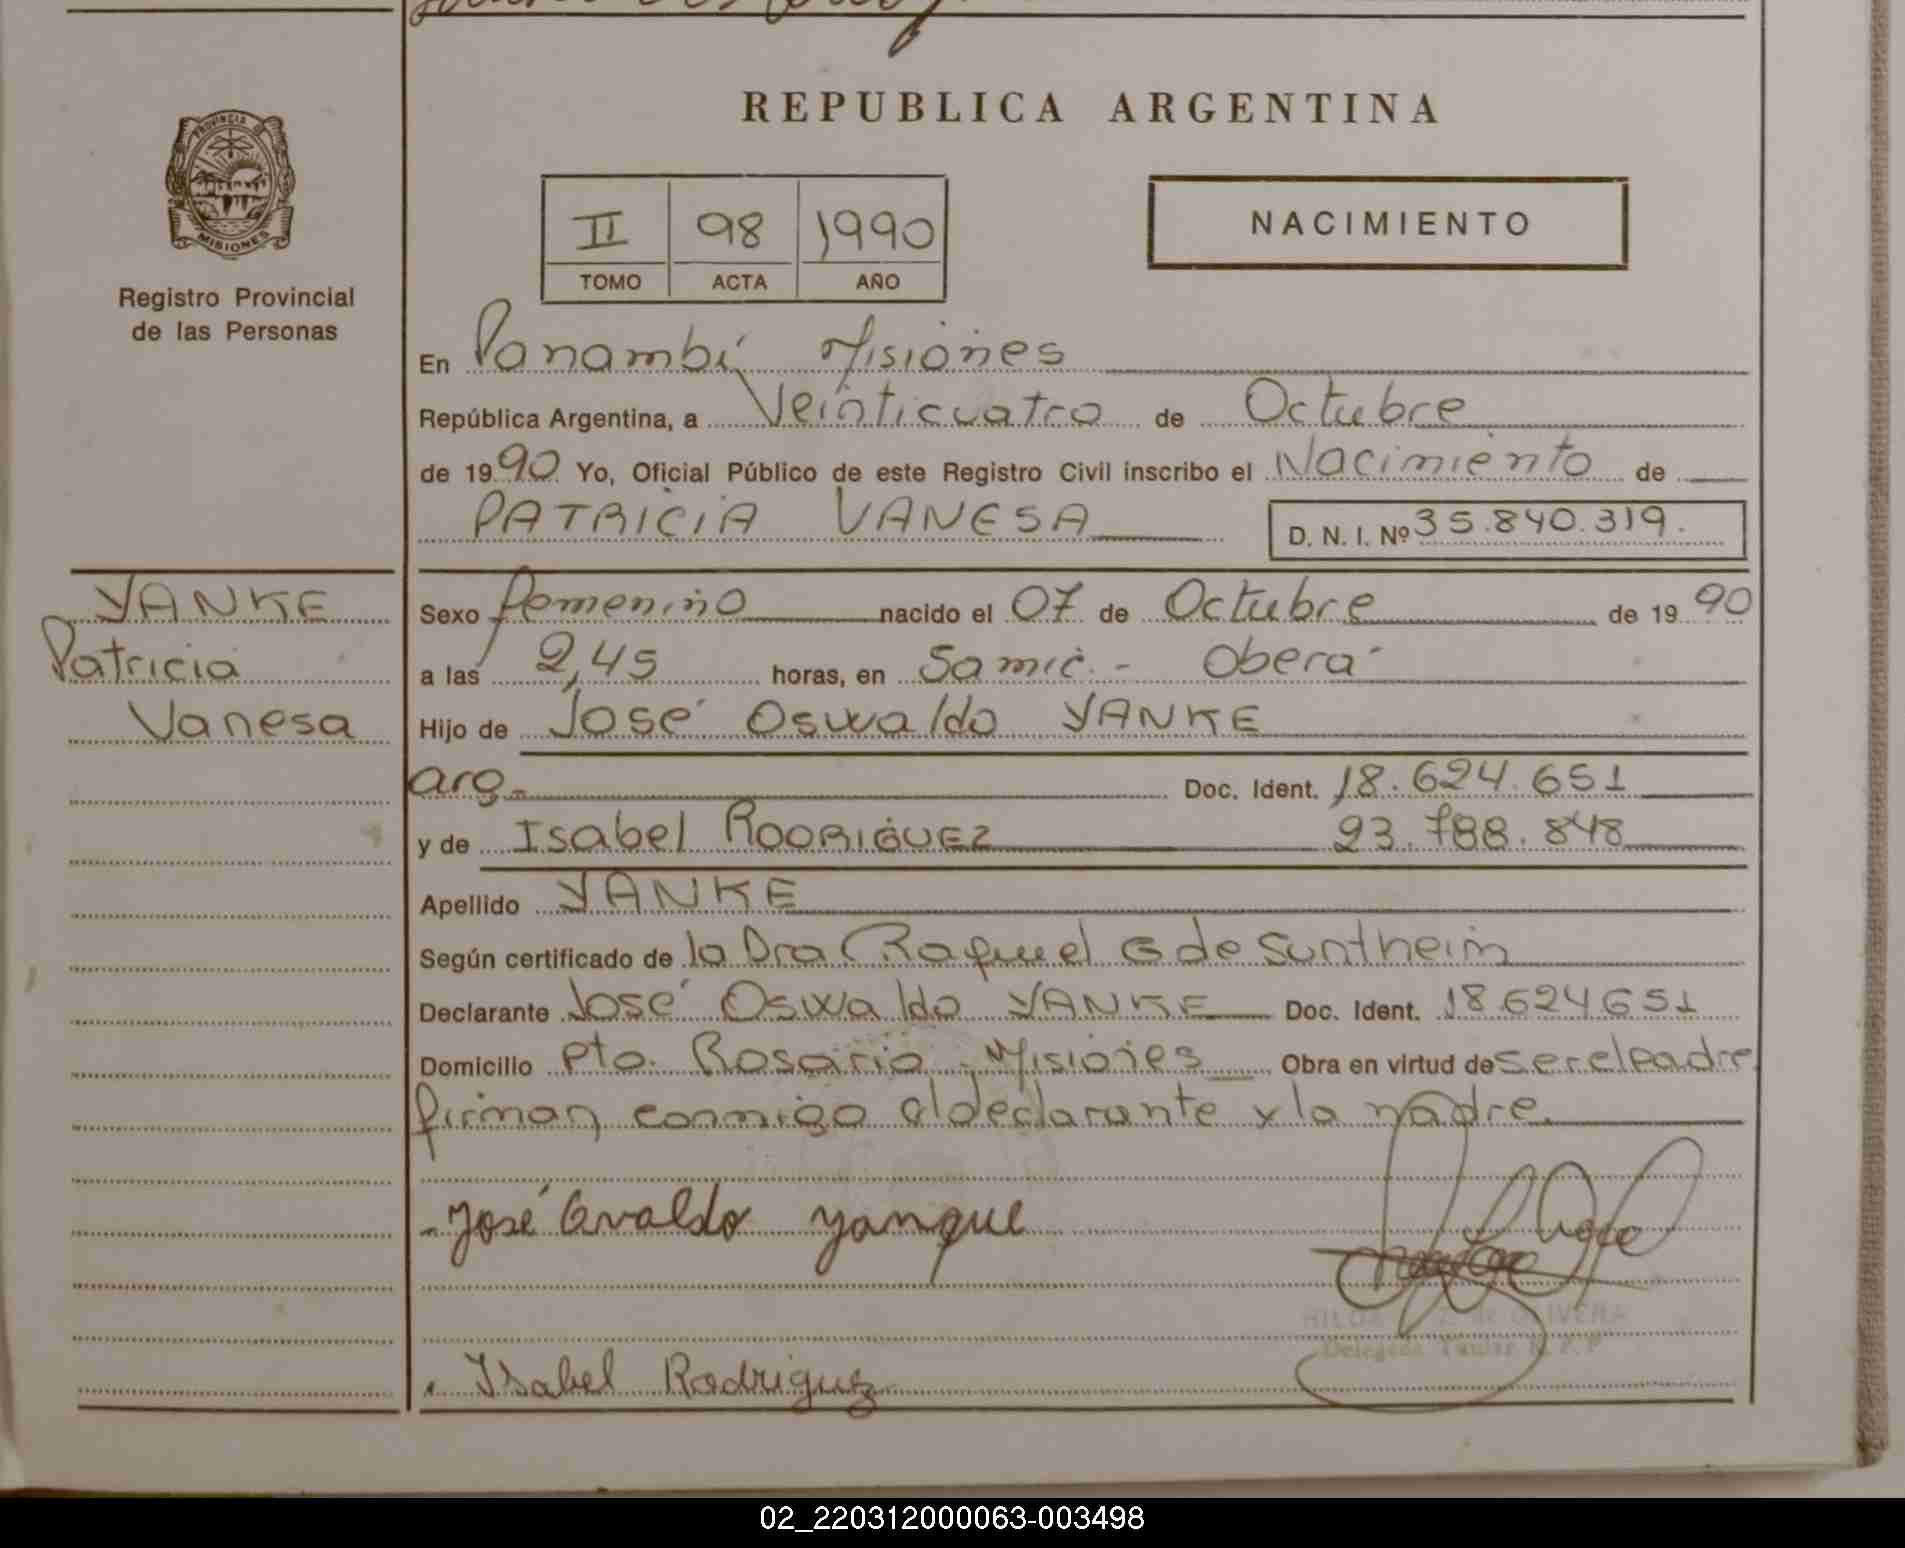 REPUBLICA ARGENTINA
PROVINCIA DE
MISIONES
Registro Provincial
de las Personas
II 98 1990
TOMO ACTA AÑO
NACIMIENTO
En Panambí Misiones
República Argentina, a Veinticuatro de Octubre
de 1990 Yo, Oficial Público de este Registro Civil inscribo el Nacimiento de
PATRICIA VANESA D. N. I. Nº 35.840.319.
YANKE
Patricia
Vanesa
Sexo femenino nacido el 07 de Octubre de 1990
a las 2,45 horas, en Samic.- Oberá
Hijo de José Oswaldo YANKE
arg.- Doc. Ident. 18.624.651
y de Isabel RODRIGUEZ 93.788.848
Apellido YANKE
Según certificado de la Dra Raquel G de Suntheim
Declarante José Oswaldo YANKE Doc. Ident. 18.624651
Domicilio Pto. Rosario - Misiones Obra en virtud de ser el Padre
firman conmigo al declarante y la madre.
- José Osvaldo yanque
HILDA de OLIVERA
Delegada Titular R.P.P
Isabel Rodriguez
02_220312000063-003498